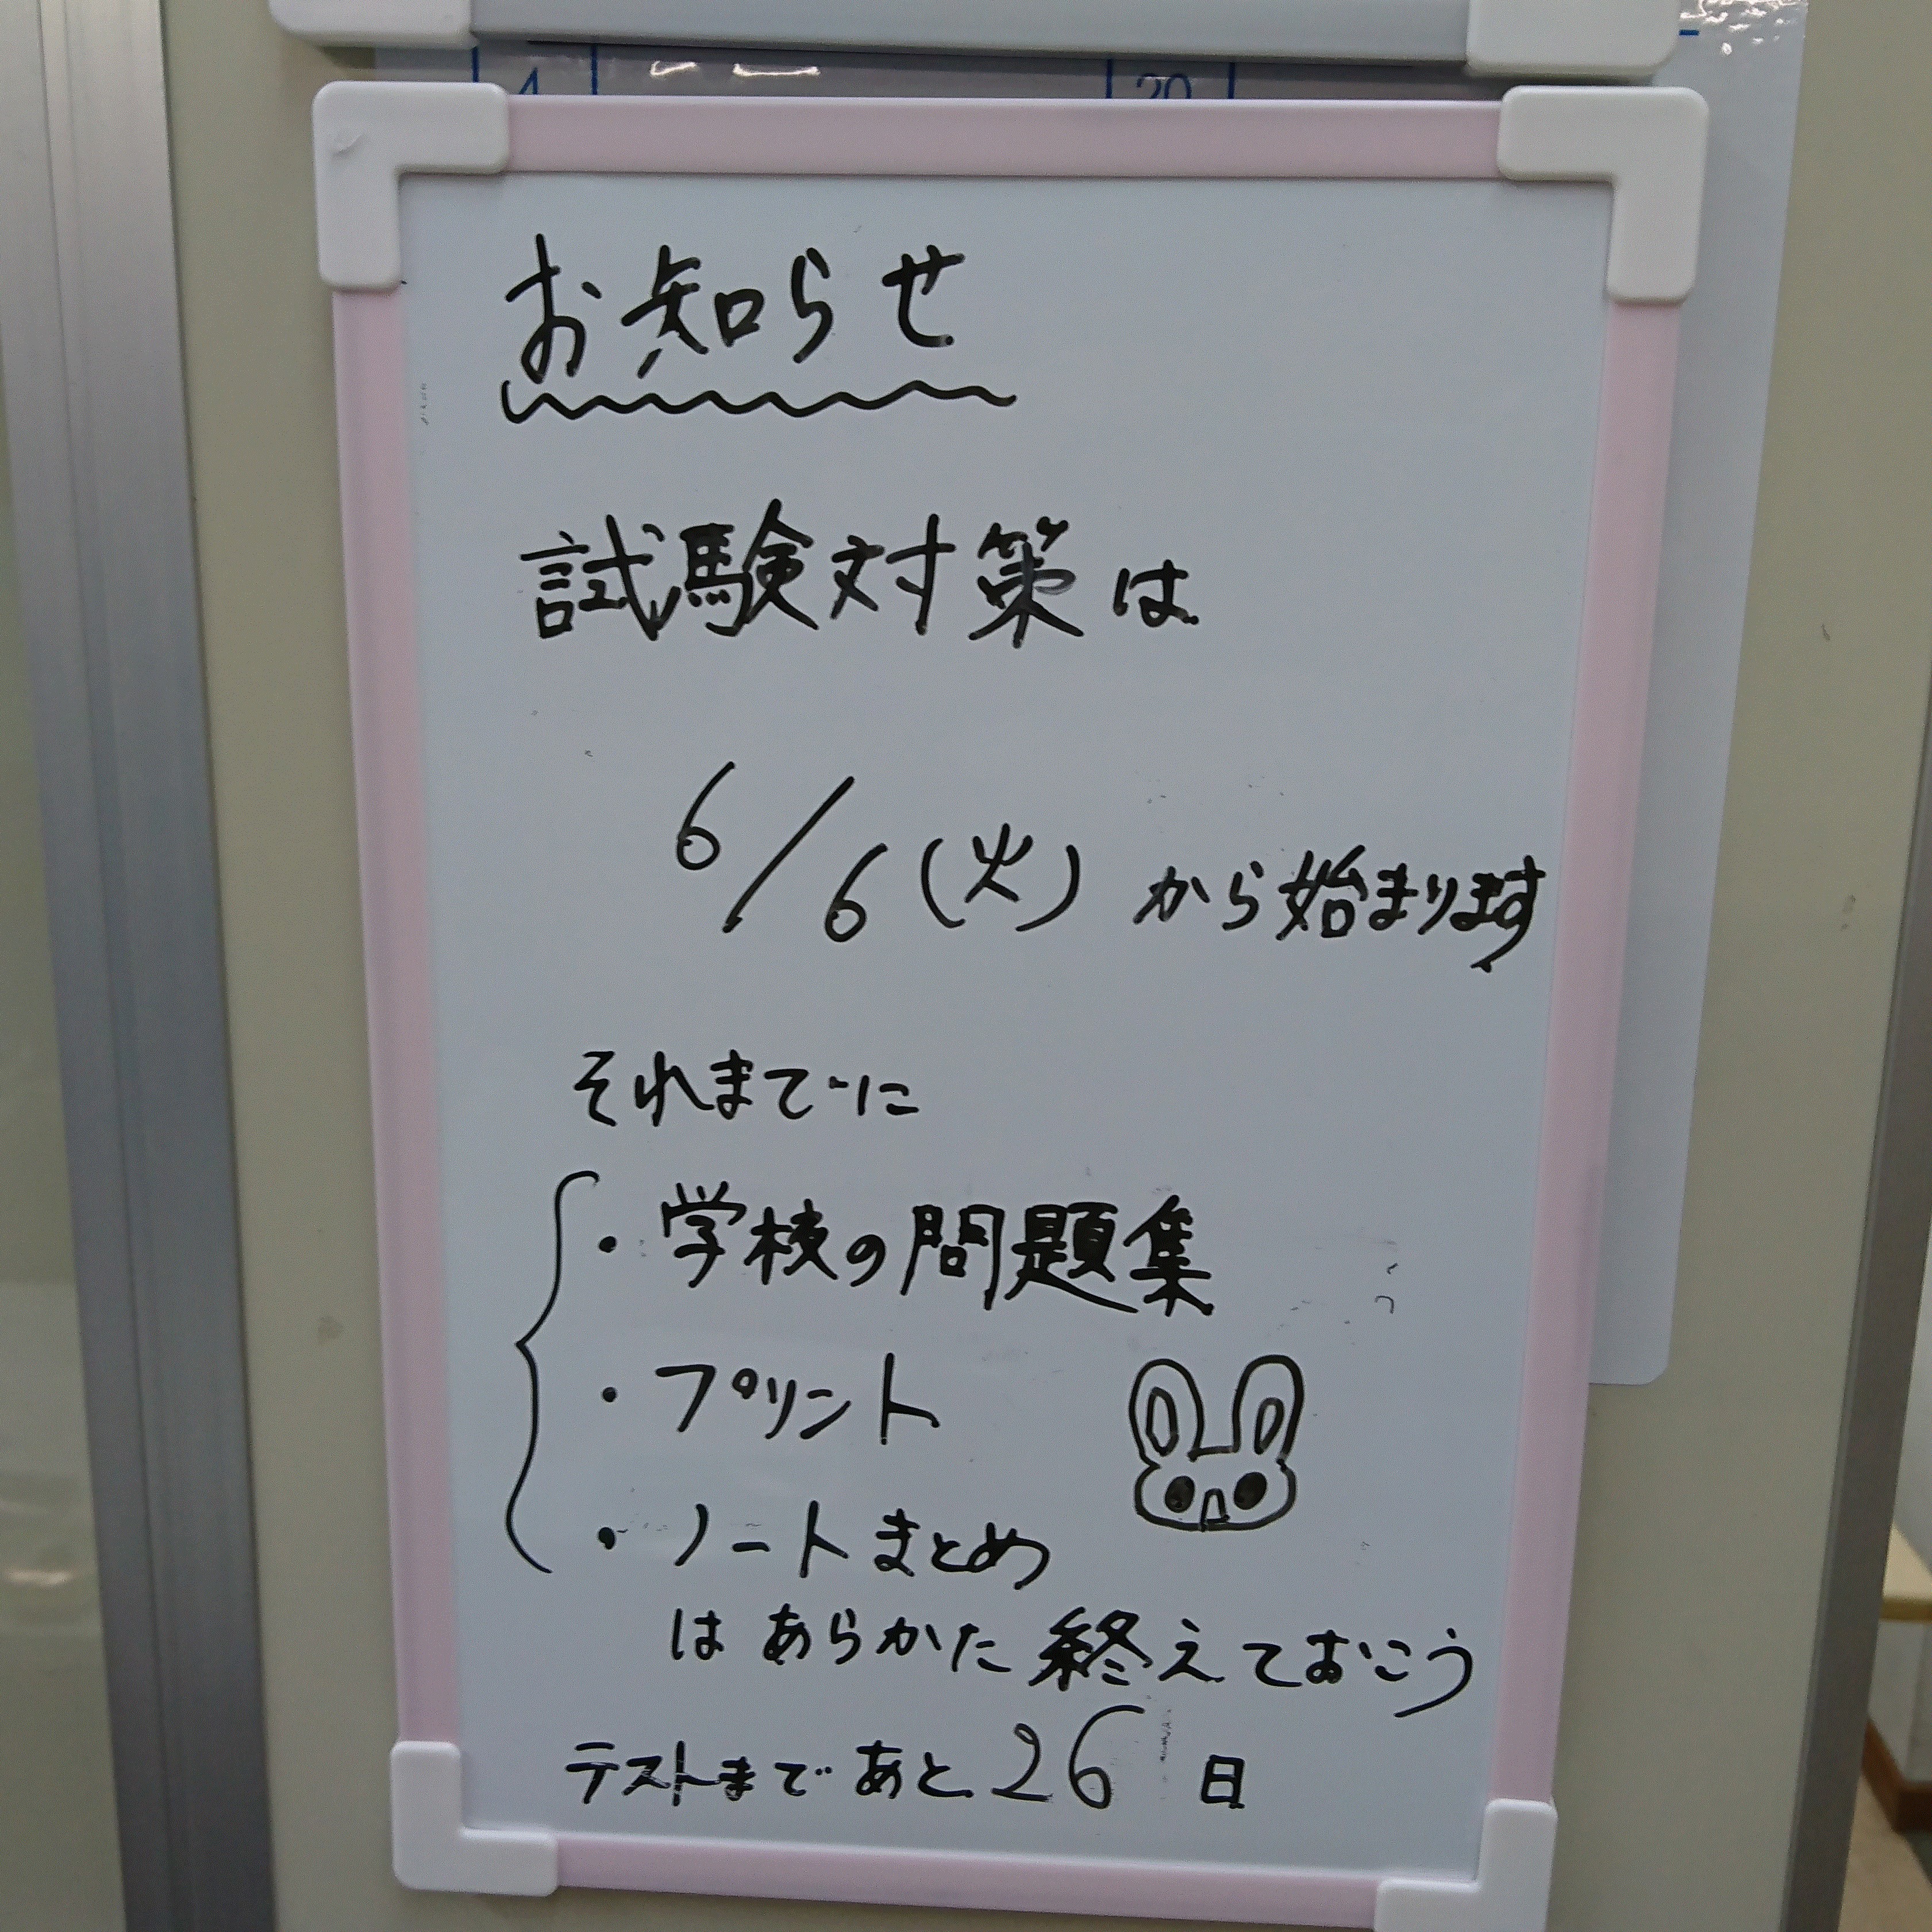 4 20
お知らせ
試験対策は
6/6(火)から始まります
それまでに
・学校の問題集
・プリント
・ノートまとめ
はあらかた終えておこう
テストまであと26日